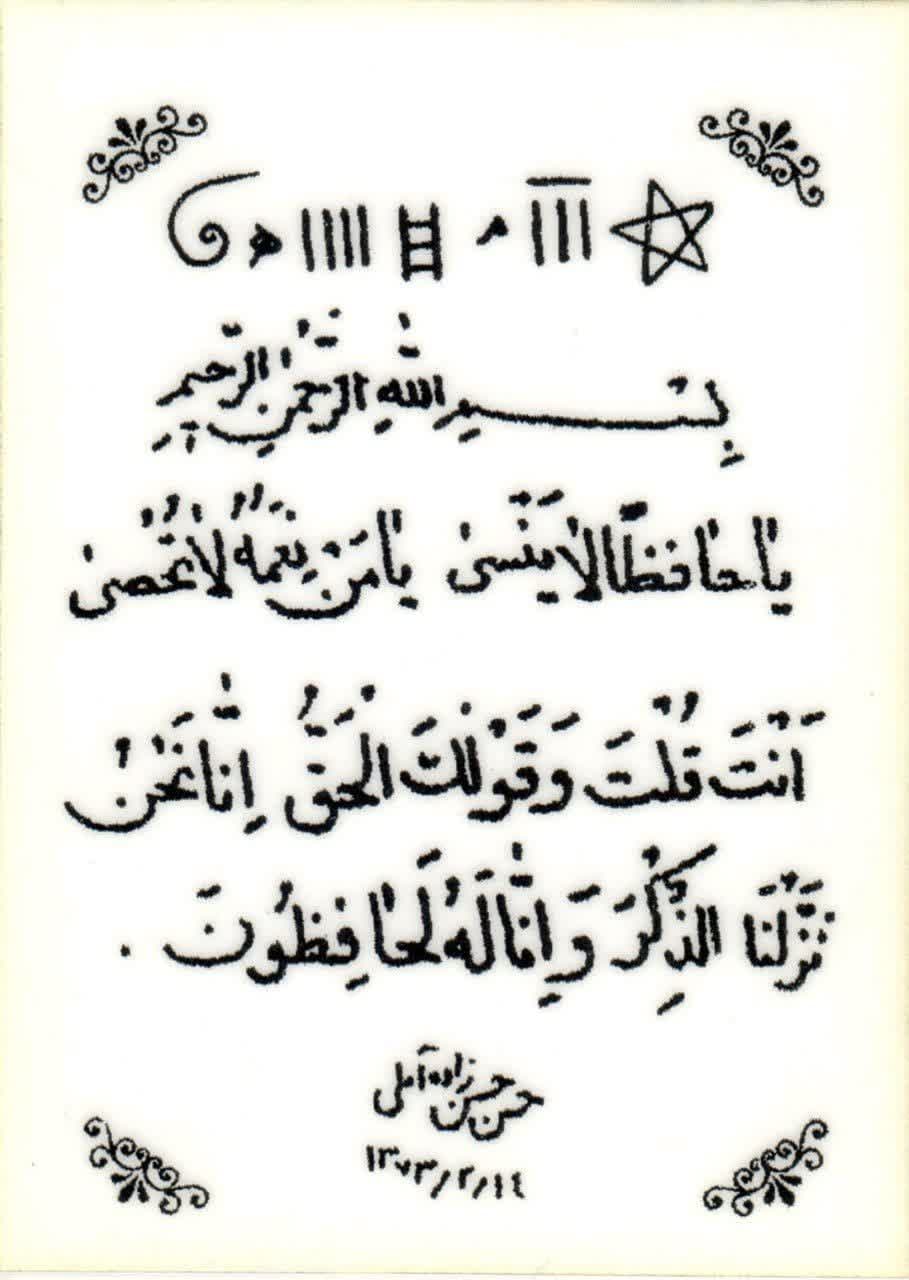 بِسْمِ اللّٰهِ الرَّحْمٰنِ الرَّحيمِ
يا حافِظًا لا يَنْسىٰ يا مَنْ نِعَمُهُ لا تُحْصىٰ
اَنْتَ قُلْتَ وَ قَوْلُكَ الْحَقُّ اِنّا نَحْنُ
نَزَّلْنَا الذِّكْرَ وَ اِنّا لَهُ لَحافِظُونَ .
حسن حسن زاده آملی
۱۳۷۳/۲/۱٤